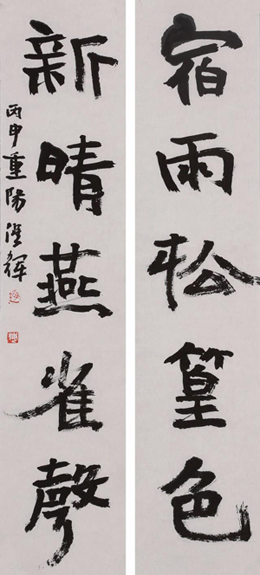 宿雨松篁色
新晴燕雀聲
丙申重陽